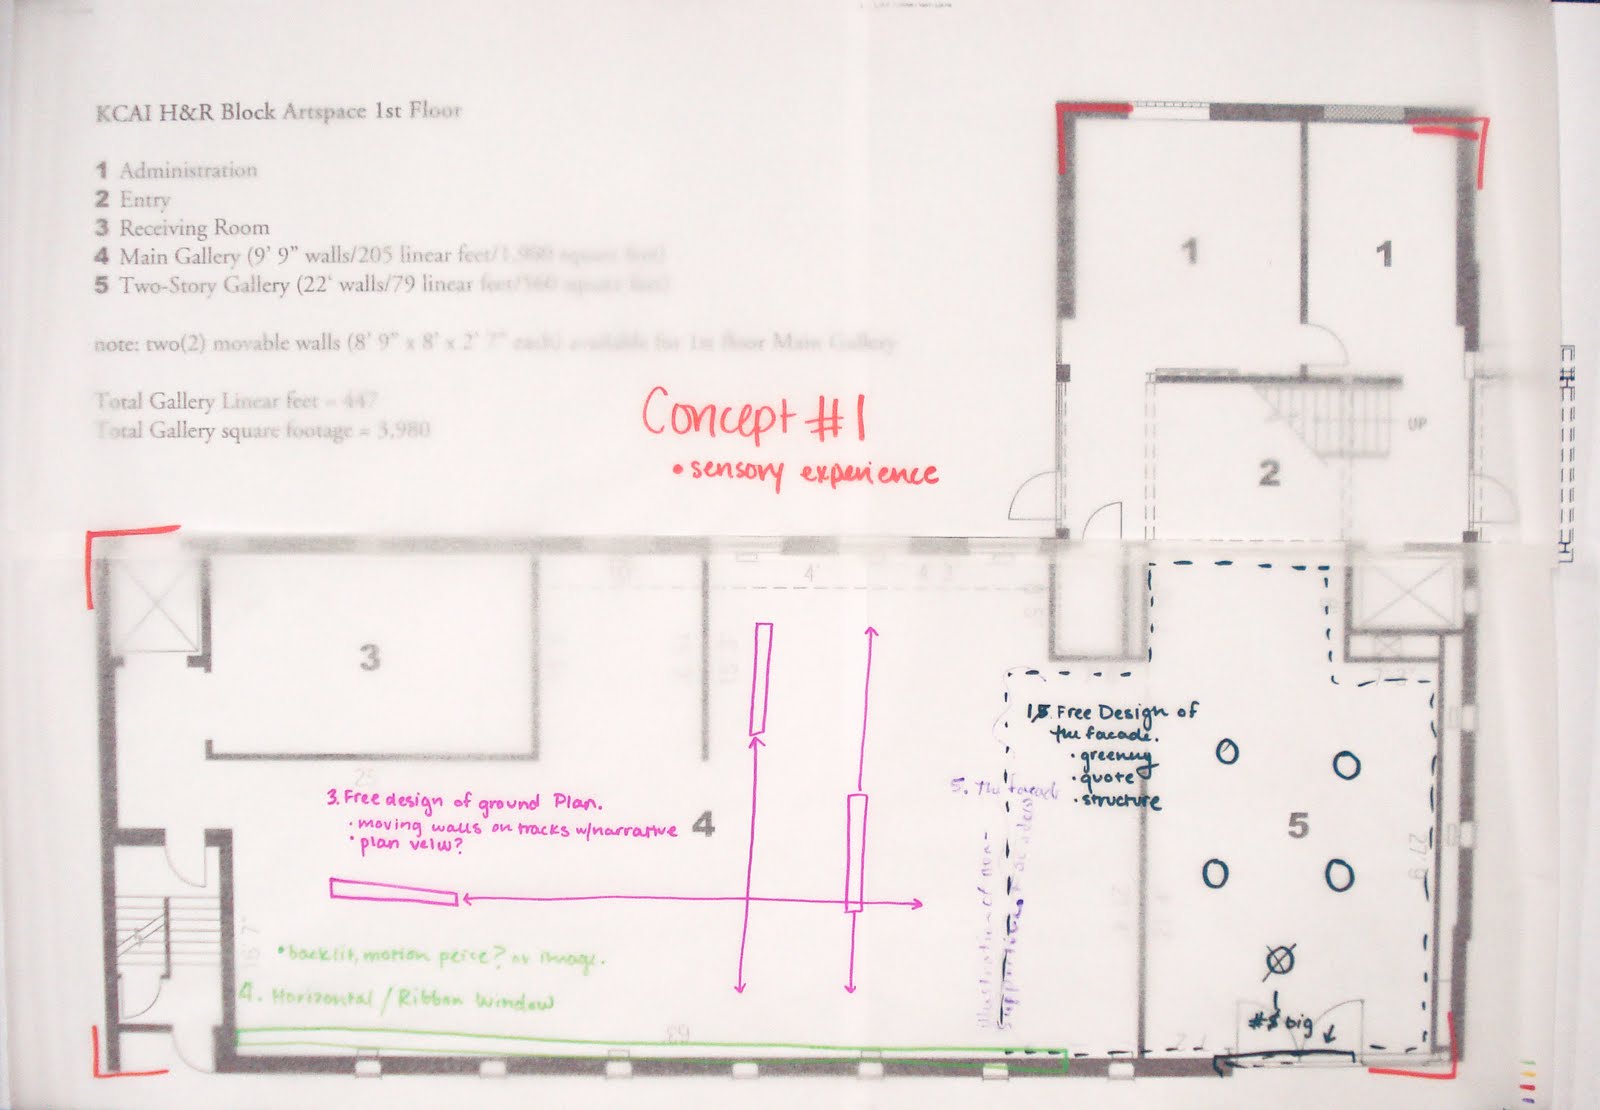 KCAI H&R Block Artspace 1st Floor
1 Administration
2 Entry
3 Receiving Room
4 Main Gallery (9' 9" walls/205 linear feet/1,900 square feet)
5 Two-Story Gallery (22' walls/79 linear feet/560 square feet)
note: two(2) movable walls (8' 9" x 8' x 2' 7" each) available for 1st floor Main Gallery
Total Gallery Linear feet = 447
Total Gallery square footage = 3,980
Concept #1
• sensory experience
1
1
UP
2
3
4'
1. Free Design of
the facade.
• greenery
• quote
• structure
5. The facade
illustration of non-
supporting facades
3. Free design of ground Plan.
• moving walls on tracks w/narrative
• plan veiw?
4
5
25
27'9
• backlit, motion peice? or image.
4. Horizontal / Ribbon Window
63
big